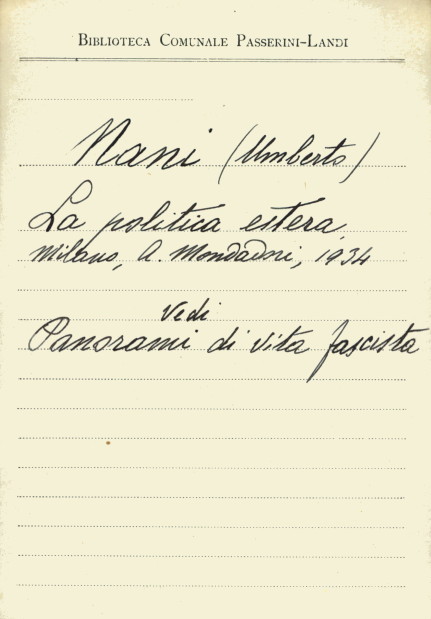 BIBLIOTECA COMUNALE PASSERINI-LANDI
Nani (Umberto)
La politica estera
Milano, A. Mondadori, 1934
Vedi
Panorami di vita fascista